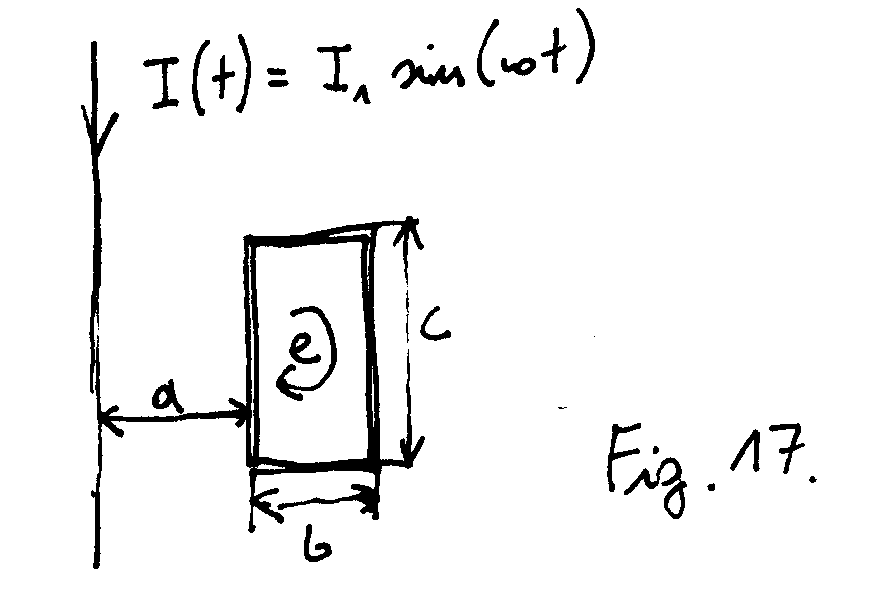 I(t) = I₁ sin(ωt)
e
c
a
b
Fig. 17.